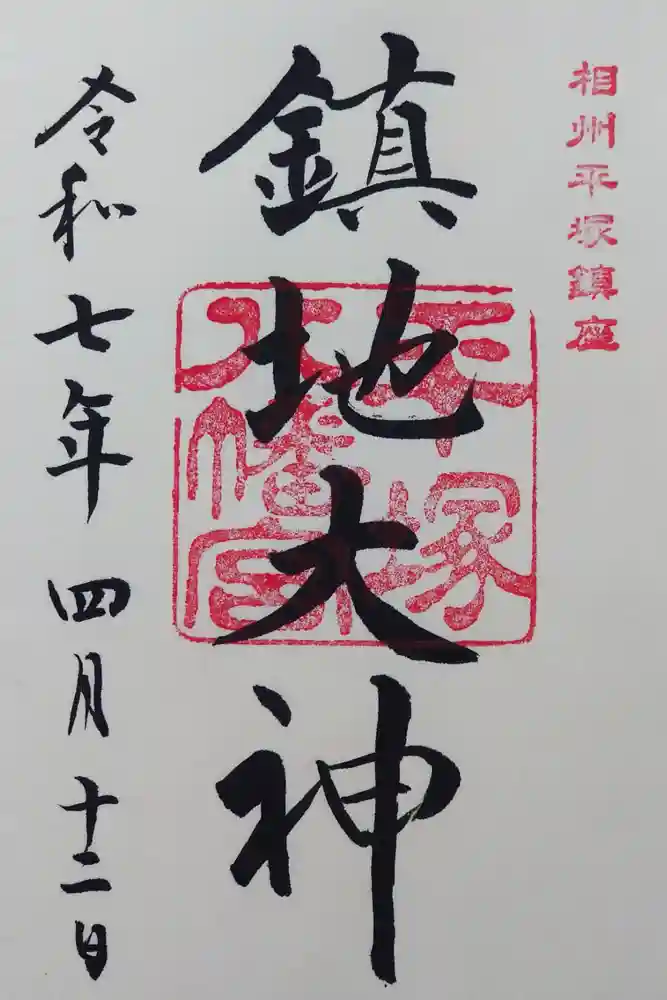 相州平塚鎮座
鎮地大神
平塚
八幡宮
令和七年四月十二日